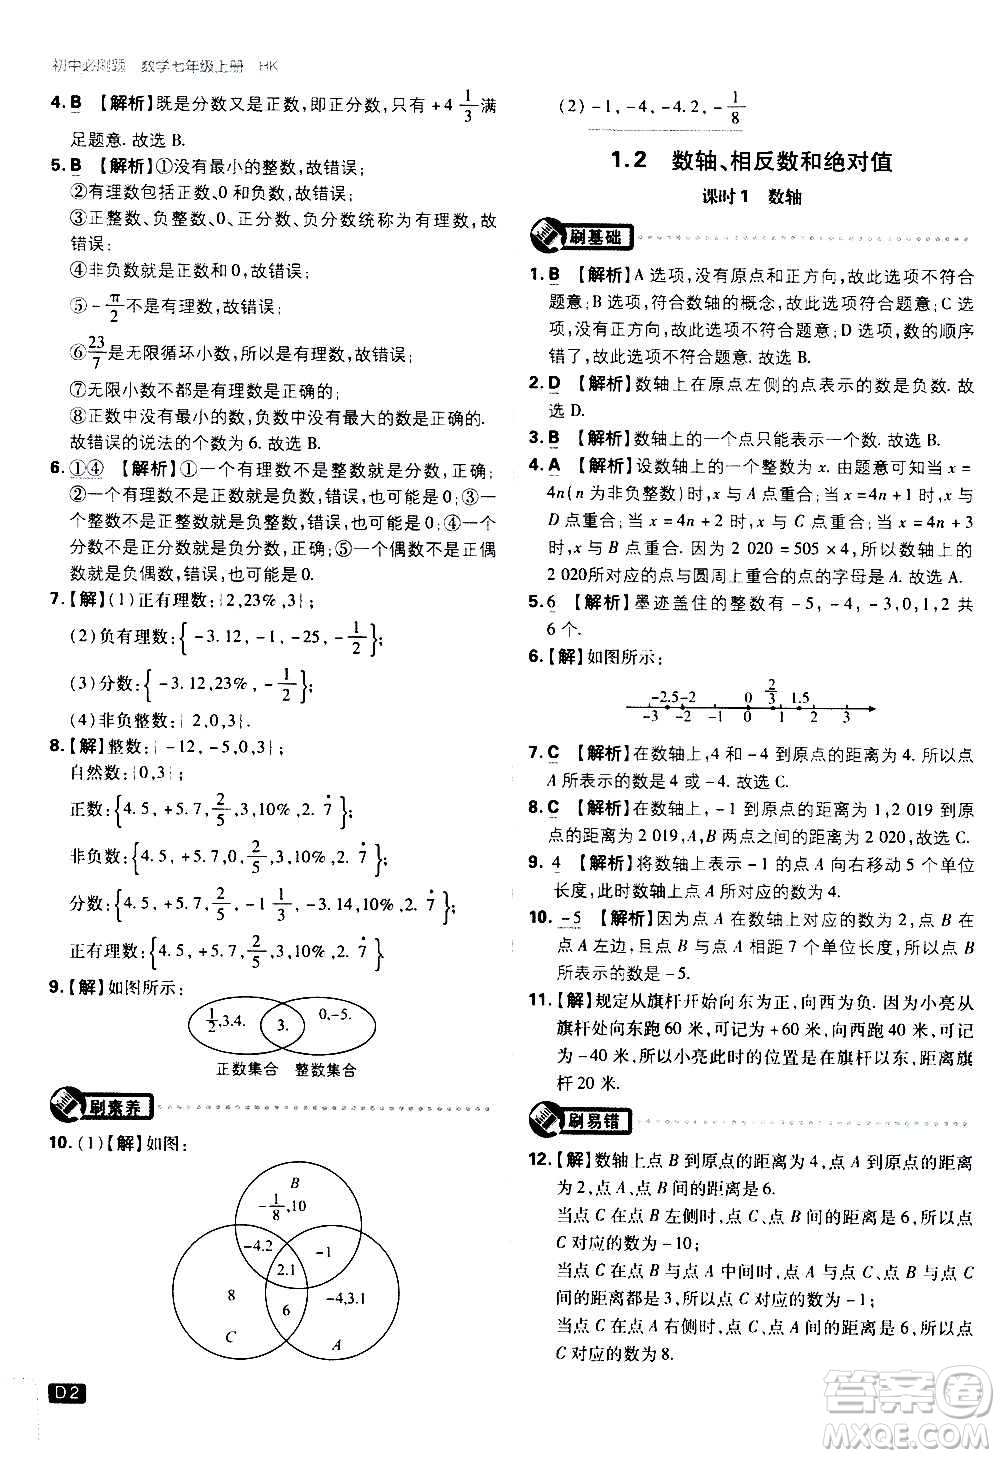 初中必刷题 数学七年级上册 HK
4. B 【解析】既是分数又是正数,即正分数,只有 +4 1/3 满
足题意. 故选 B.
5. B 【解析】①没有最小的整数,故错误;
②有理数包括正数、0 和负数,故错误;
③正整数、负整数、正分数、负分数统称为有理数,故
错误;
④非负数就是正数和 0,故错误;
⑤ -π/2 不是有理数,故错误;
⑥ 23/7 是无限循环小数,所以是有理数,故错误;
⑦无限小数不都是有理数是正确的;
⑧正数中没有最小的数,负数中没有最大的数是正确的.
故错误的说法的个数为 6. 故选 B.
6. ①④ 【解析】①一个有理数不是整数就是分数,正确;
②一个有理数不是正数就是负数,错误,也可能是 0;③一
个整数不是正数就是负数,错误,也可能是 0;④一个
分数不是正分数就是负分数,正确;⑤一个偶数不是正偶
数就是负偶数,错误,也可能是 0.
7.【解】(1)正有理数:{2,23%,3};
(2)负有理数:{-3.12,-1,-25,-1/2};
(3)分数:{-3.12,23%,-1/2};
(4)非负整数:{2,0,3}.
8.【解】整数:{-12,-5,0,3};
自然数:{0,3};
正数:{4.5,+5.7,2/5,3,10%,2.7̇};
非负数:{4.5,+5.7,0,2/5,3,10%,2.7̇};
分数:{4.5,+5.7,2/5,-1 1/3,-3.14,10%,2.7̇};
正有理数:{4.5,+5.7,2/5,3,10%,2.7̇}.
9.【解】如图所示:
1/2,3.4. 3. 0,-5.
正数集合 整数集合
刷素养
10.(1)【解】如图:
B
-1/8,10
-4.2 -1
2.1
8 6 -4,3.1
C A
D2
(2) -1,-4,-4.2,-1/8
1.2 数轴、相反数和绝对值
课时1 数轴
刷基础
1. B 【解析】A 选项,没有原点和正方向,故此选项不符合
题意;B 选项,符合数轴的概念,故此选项符合题意;C 选
项,没有正方向,故此选项不符合题意;D 选项,数的顺序
错了,故此选项不符合题意. 故选 B.
2. D 【解析】数轴上在原点左侧的点表示的数是负数. 故
选 D.
3. B 【解析】数轴上的一个点只能表示一个数. 故选 B.
4. A 【解析】设数轴上的一个整数为 x. 由题意可知,当 x =
4n(n 为非负整数)时,x 与 A 点重合;当 x = 4n + 1 时,x 与
D 点重合;当 x = 4n + 2 时,x 与 C 点重合;当 x = 4n + 3
时,x 与 B 点重合. 因为 2 020 = 505 × 4,所以数轴上的
2 020所对应的点与圆周上重合的点的字母是 A. 故选 A.
5. 6 【解析】墨迹盖住的整数有 -5,-4,-3,0,1,2 共
6 个.
6.【解】如图所示:
-2.5 -2 0 2/3 1.5
-3 -2 -1 0 1 2 3
7. C 【解析】在数轴上,4 和 -4 到原点的距离为 4. 所以点
A 所表示的数是 4 或 -4. 故选 C.
8. C 【解析】在数轴上,-1 到原点的距离为 1,2 019 到原
点的距离为 2 019,A,B 两点之间的距离为 2 020,故选 C.
9. 4 【解析】将数轴上表示 -1 的点 A 向右移动 5 个单位
长度,此时数轴上点 A 所对应的数为 4.
10. -5 【解析】因为点 A 在数轴上对应的数为 2,点 B 在
点 A 左边,且点 B 与点 A 相距 7 个单位长度,所以点 B
所表示的数是 -5.
11.【解】规定从旗杆开始向东为正,向西为负. 因为小亮从
旗杆处向东跑 60 米,可记为 +60 米,向西跑 40 米,可记
为 -40 米,所以小亮此时的位置是在旗杆以东,距离旗
杆 20 米.
刷易错
12.【解】数轴上点 B 到原点的距离为 4,点 A 到原点的距离
为 2,点 A、点 B 间的距离是 6.
当点 C 在点 B 左侧时,点 C、点 B 间的距离是 6,所以点
C 对应的数为 -10;
当点 C 在点 B 与点 A 中间时,点 C 与点 A、点 C 与点 B
间的距离都是 3,所以点 C 对应的数为 -1;
当点 C 在点 A 右侧时,点 C、点 A 间的距离是 6,所以点
C 对应的数为 8.
答案圈
MXQE.COM